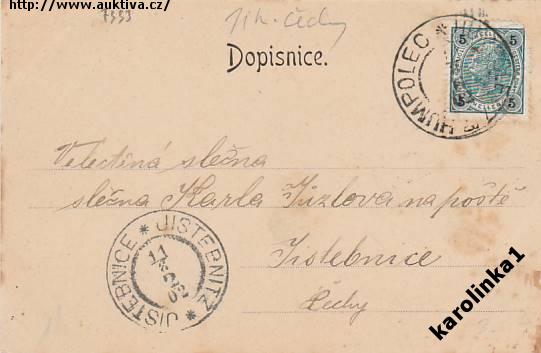 http://www.auktiva.cz/
7353
jih. Čechy
Dopisnice.
5 5
5 5
HUMPOLEC *
Veletěná slečna
slečna Karla Kúzlova na poště
Jistebnice
Čechy
JISTEBNICE * JISTEBNITZ *
11
karolinka1